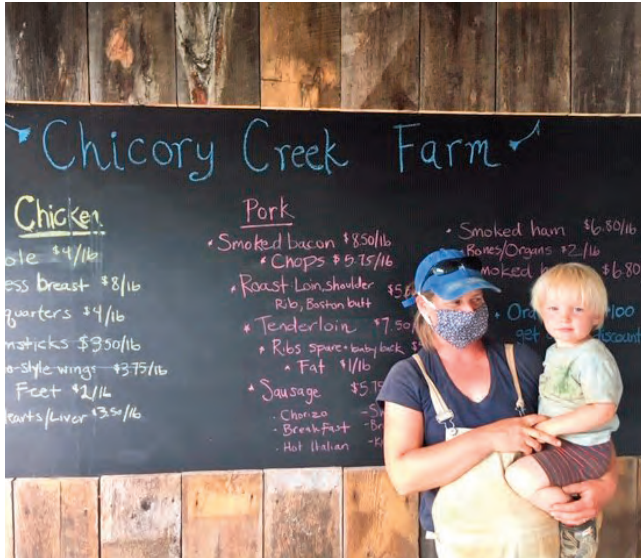 Chicory Creek Farm
Chicken
ole $4/lb
ess breast $8/lb
quarters $4/lb
msticks $3.50/lb
o-style wings $3.75/lb
Feet $2/lb
earts/Liver $3.50/lb
Pork
Smoked bacon $8.50/lb
Chops $5.75/lb
Roast Loin, shoulder
Rib, Boston butt
Tenderloin $7.50/
Ribs spare + baby back $
Fat $1/lb
Sausage $5.75
Chorizo
Breakfast
Hot Italian
Smoked ham $6.80/lb
Bones/Organs $2/lb
moked $6.80
100
get discount